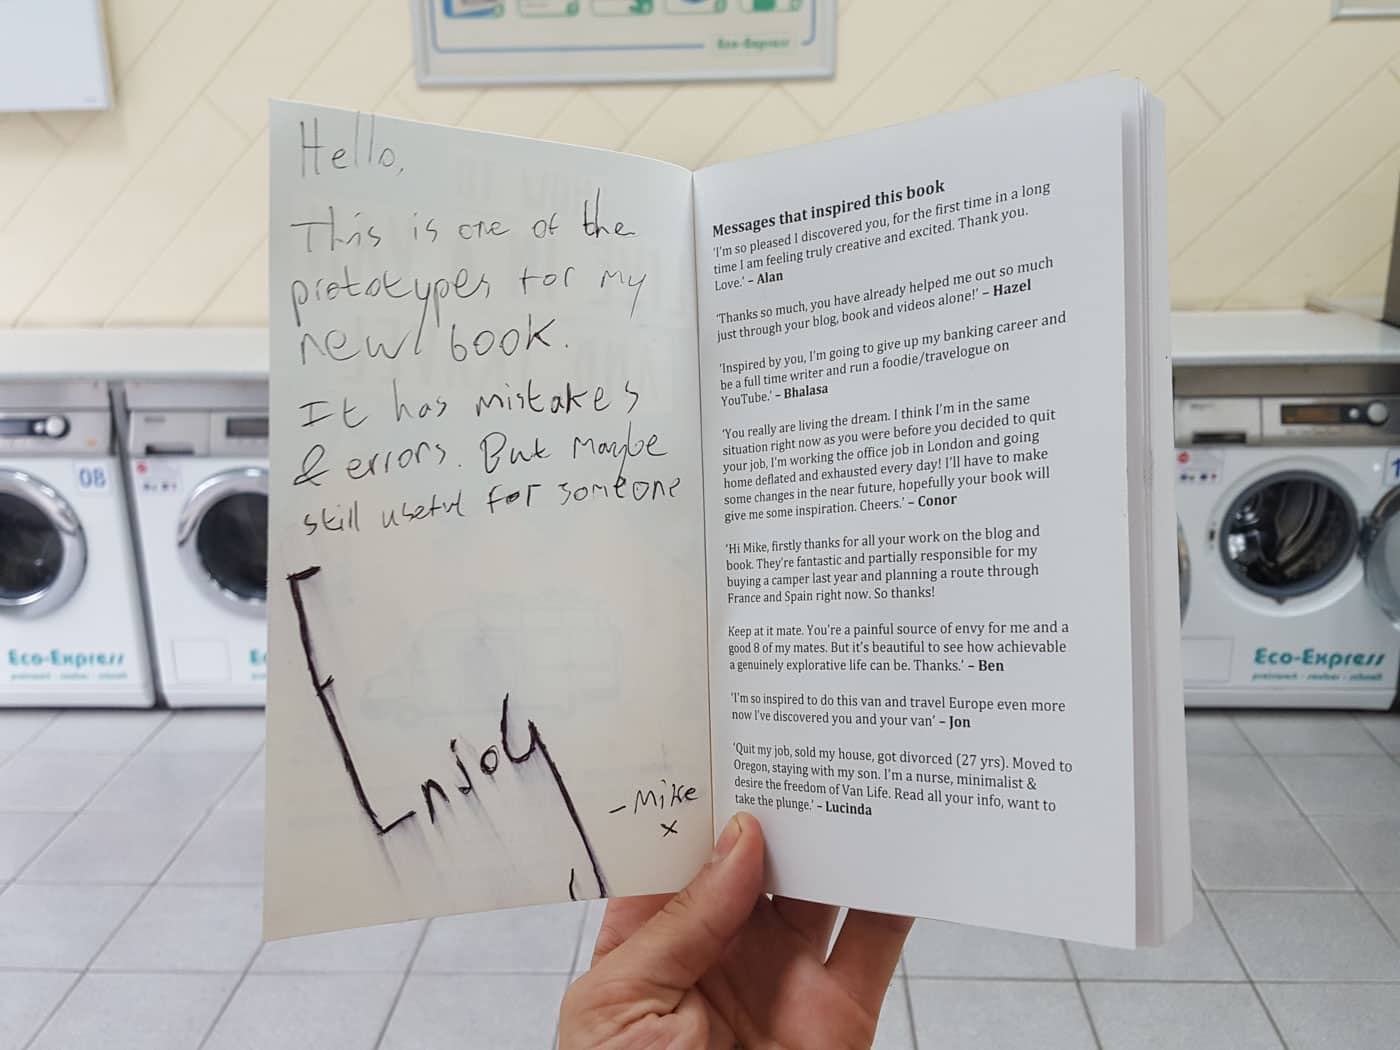 Eco-Express
Hello,
This is one of the
prototypes for my
new book.
It has mistakes
& errors. But Maybe
still useful for someone
Enjoy
- Mike
x
Messages that inspired this book
'I'm so pleased I discovered you, for the first time in a long
time I am feeling truly creative and excited. Thank you.
Love.' – Alan
'Thanks so much, you have already helped me out so much
just through your blog, book and videos alone!' – Hazel
'Inspired by you, I'm going to give up my banking career and
be a full time writer and run a foodie/travelogue on
YouTube.' – Bhalasa
'You really are living the dream. I think I'm in the same
situation right now as you were before you decided to quit
your job, I'm working the office job in London and going
home deflated and exhausted every day! I'll have to make
some changes in the near future, hopefully your book will
give me some inspiration. Cheers.' – Conor
'Hi Mike, firstly thanks for all your work on the blog and
book. They're fantastic and partially responsible for my
buying a camper last year and planning a route through
France and Spain right now. So thanks!
Keep at it mate. You're a painful source of envy for me and a
good 8 of my mates. But it's beautiful to see how achievable
a genuinely explorative life can be. Thanks.' – Ben
'I'm so inspired to do this van and travel Europe even more
now I've discovered you and your van' – Jon
'Quit my job, sold my house, got divorced (27 yrs). Moved to
Oregon, staying with my son. I'm a nurse, minimalist &
desire the freedom of Van Life. Read all your info, want to
take the plunge.' – Lucinda
08
Eco-Express
preiswert · sauber · schnell
Eco-Express
preiswert · sauber · schnell